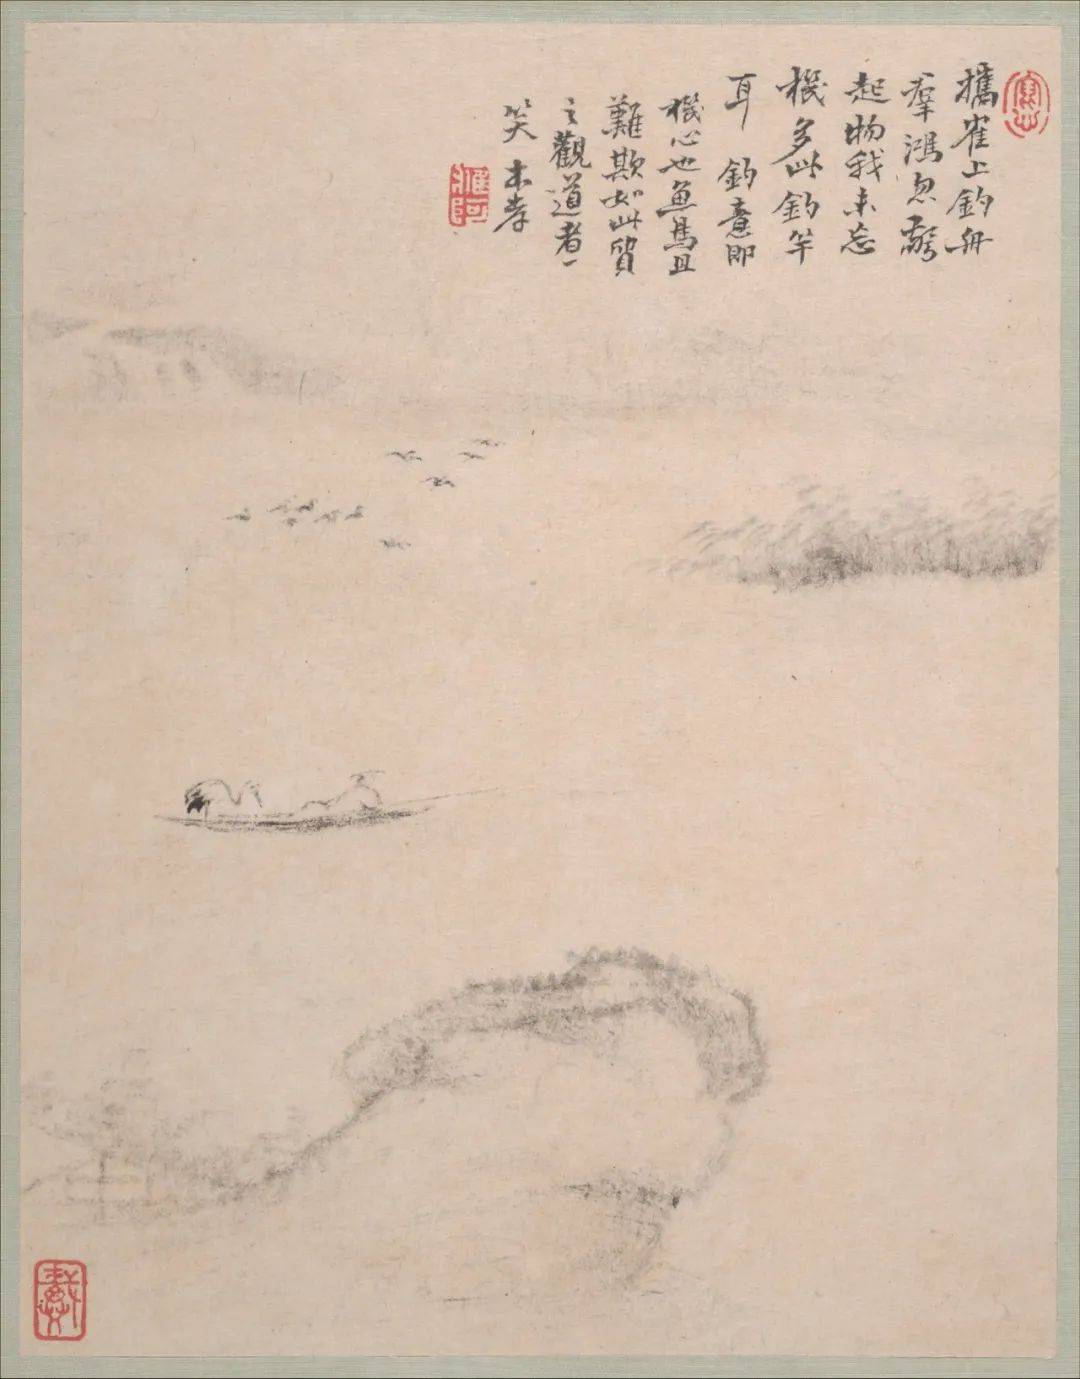 攜雀上釣舟
羣鴻忽驚
起物我未忘
機多此釣竿
耳 釣意即
機心也魚鳥且
難欺如此質
之觀道者一
笑 本孝